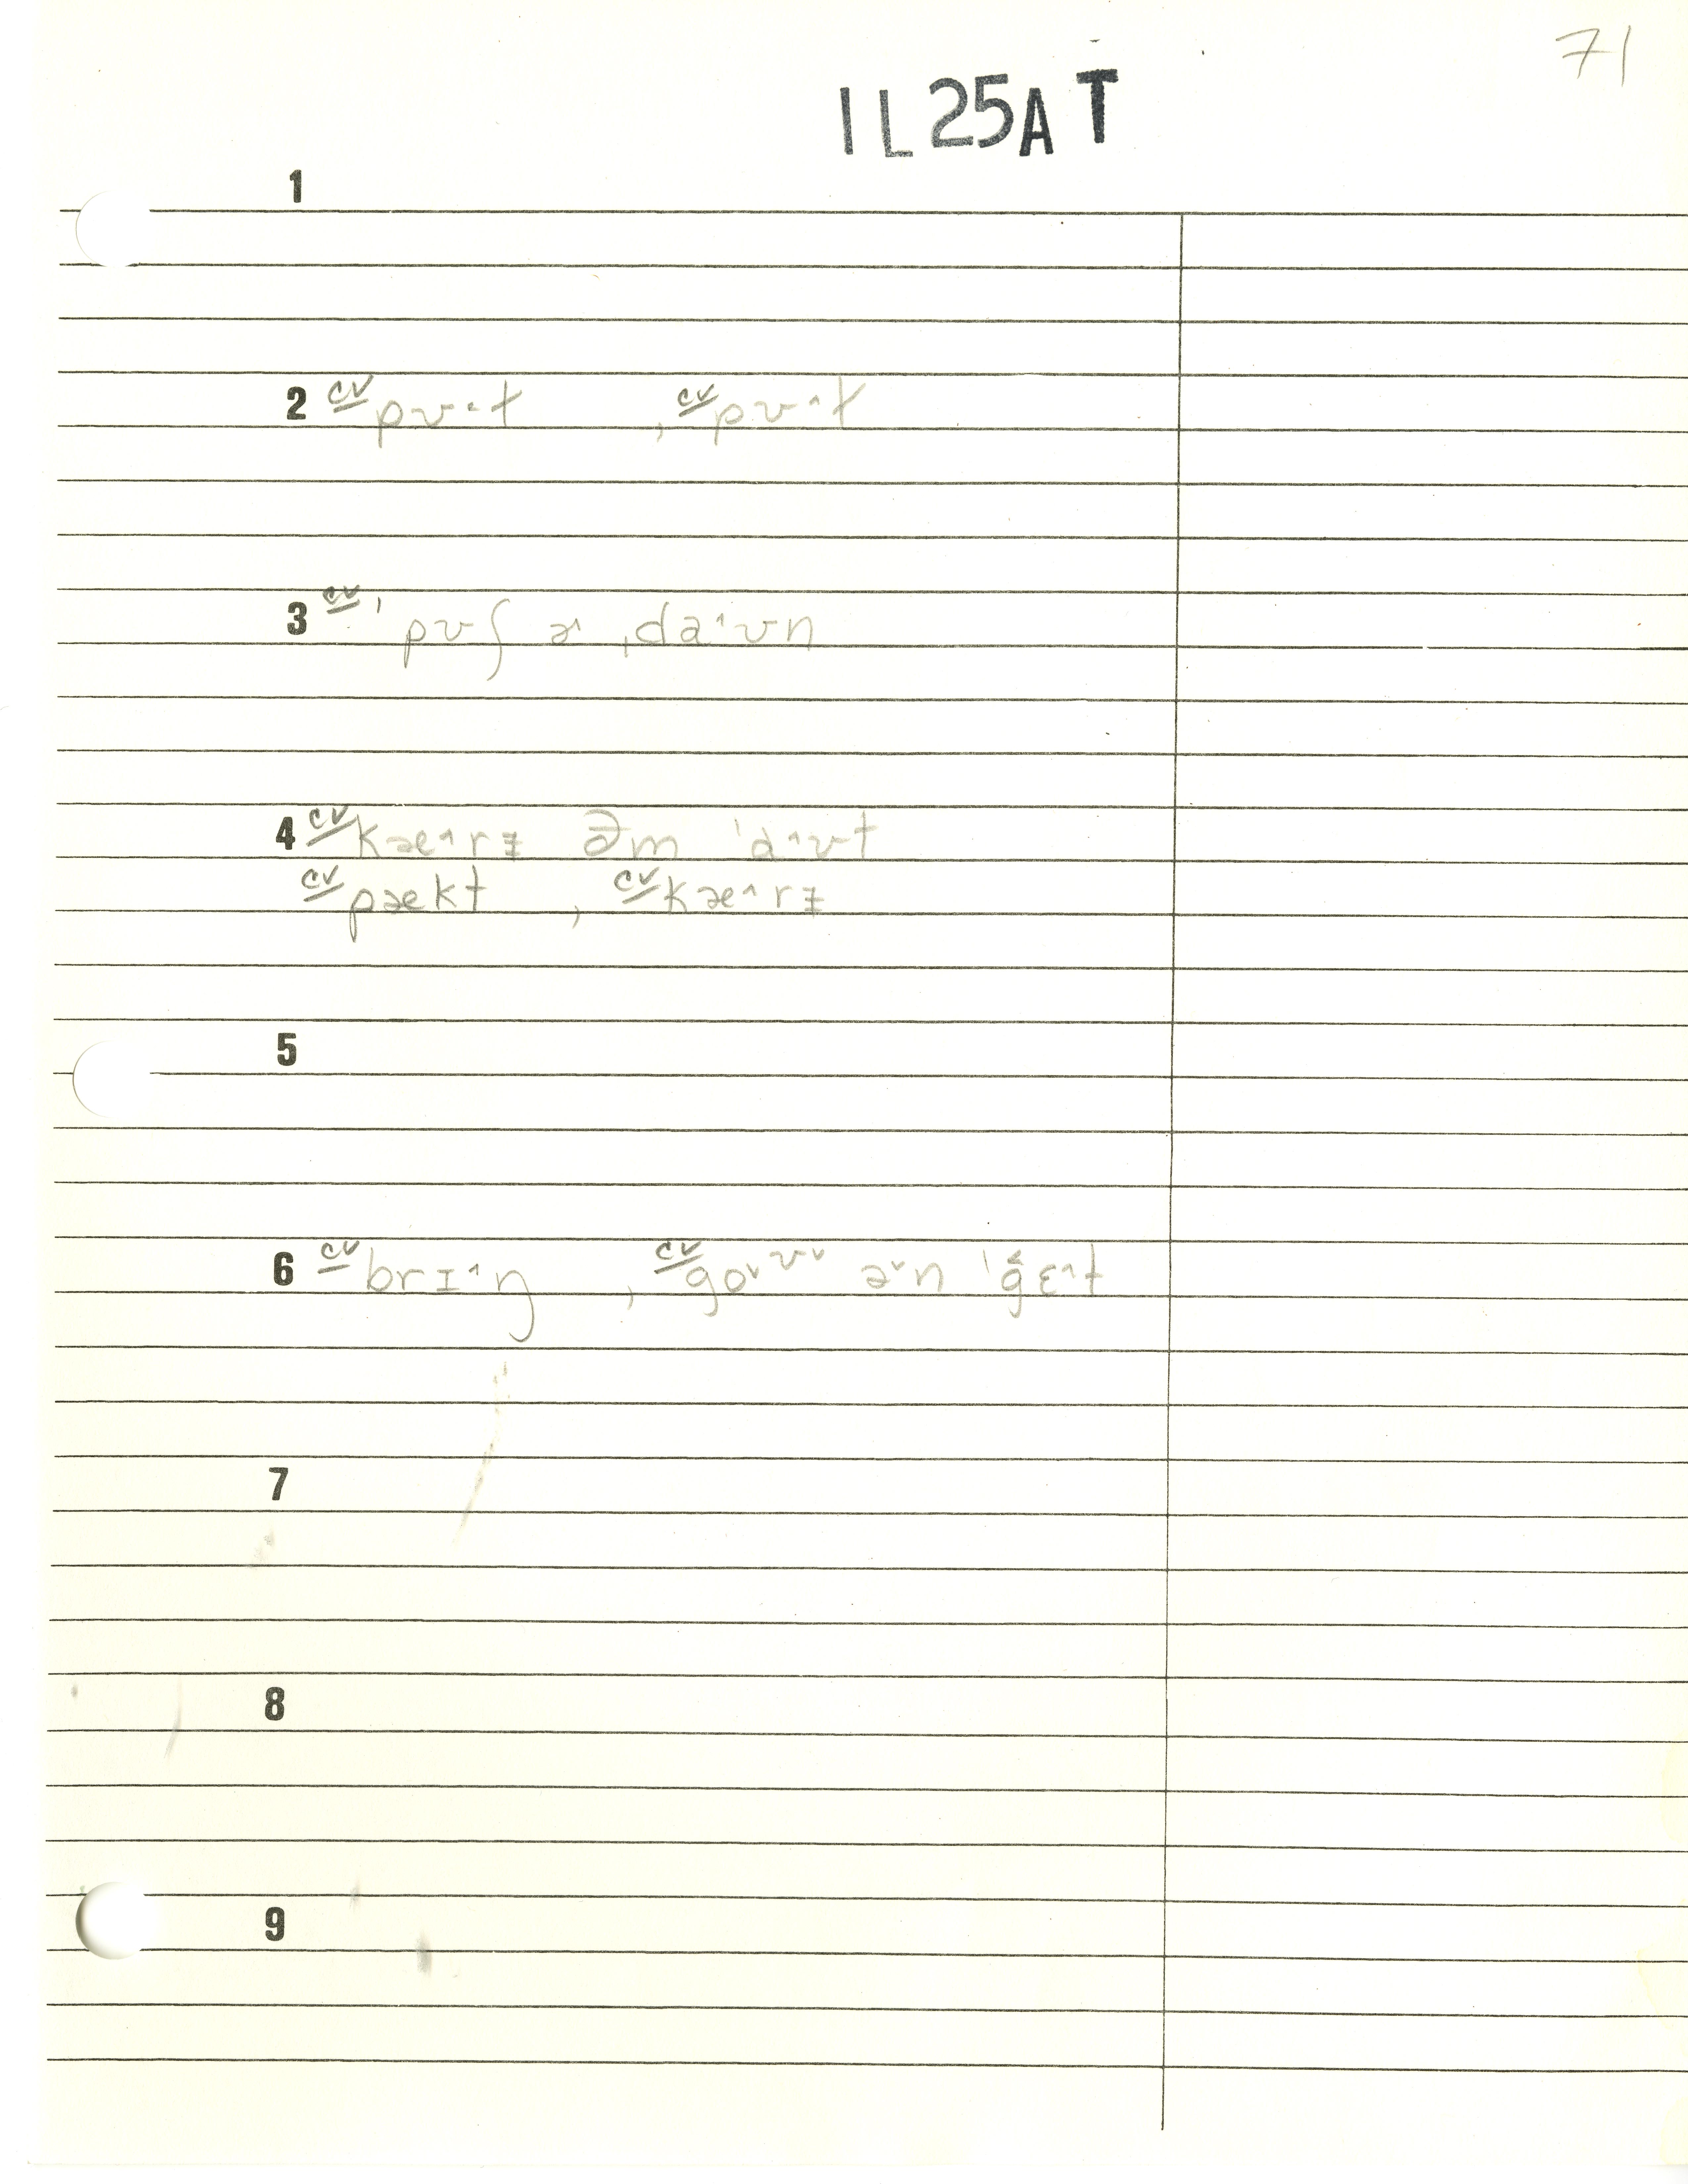 71
IL25AT
1
2 cv pʊ·t , cv pʊ^t
3 cv ˈpʊʃ ɚ ˌda^ʊn
4 cv kæ^rɪ̵ ə̃m ˈa^ʊt
cv pækt , cv kæ^rɪ̵
5
6 cv brɪ^ŋ , cv goˇʊˇ əˇn ˈg̑ɛ^t
7
8
9